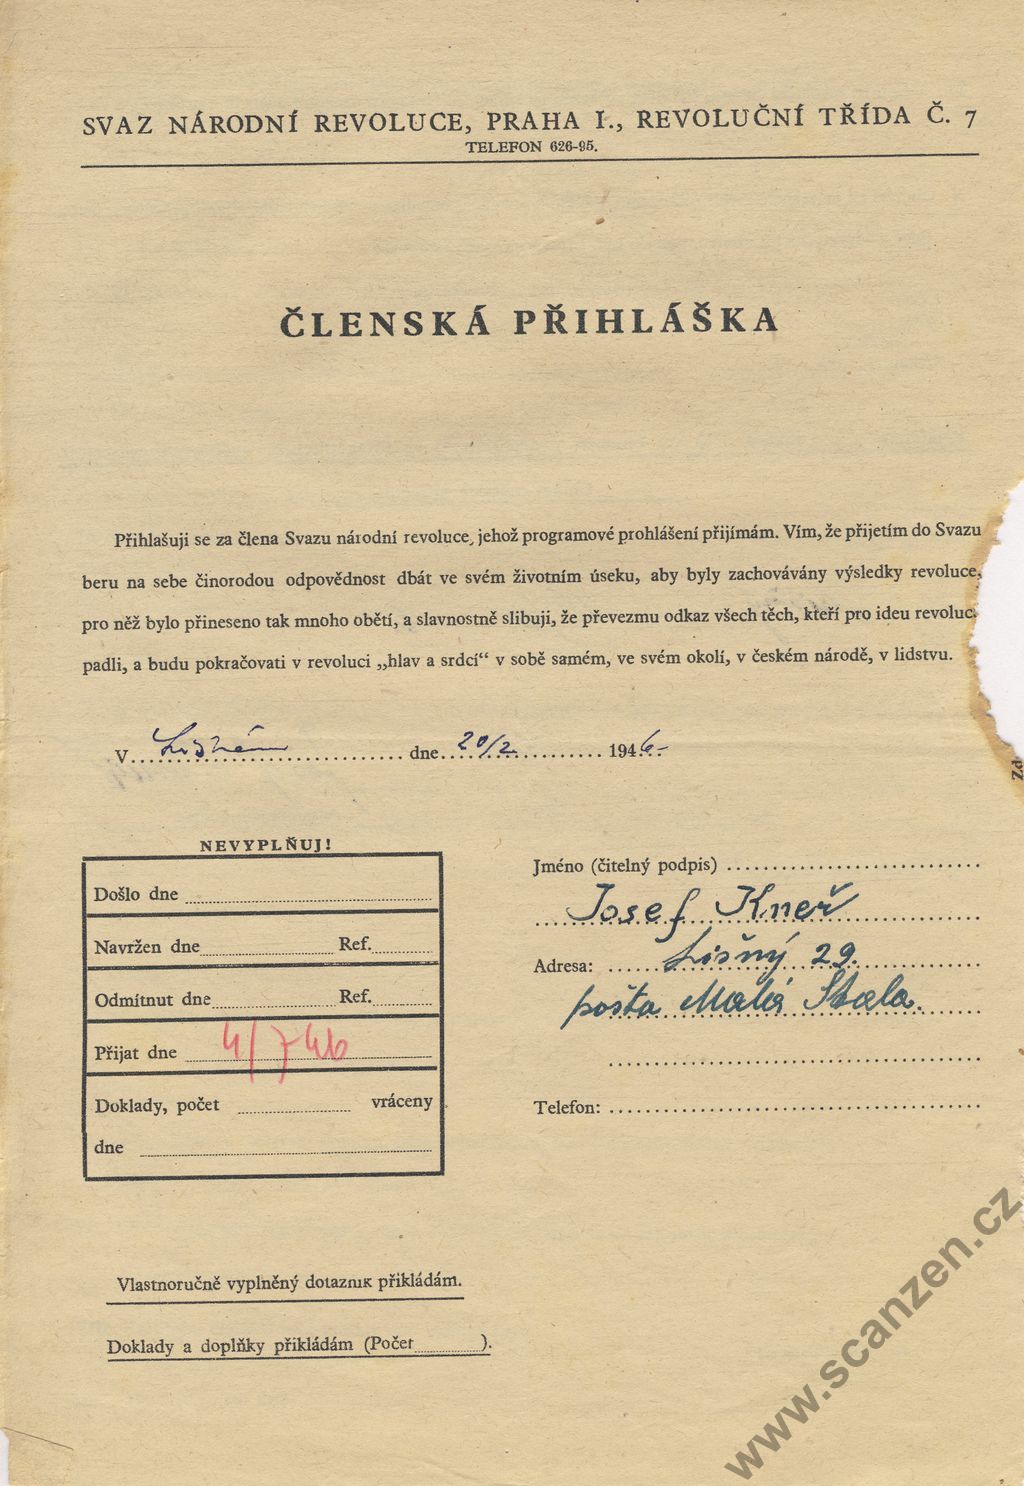 SVAZ NÁRODNÍ REVOLUCE, PRAHA I., REVOLUČNÍ TŘÍDA Č. 7
TELEFON 626-95.
ČLENSKÁ PŘIHLÁŠKA
Přihlašuji se za člena Svazu národní revoluce, jehož programové prohlášení přijímám. Vím, že přijetím do Svazu
beru na sebe činorodou odpovědnost dbát ve svém životním úseku, aby byly zachovávány výsledky revoluce,
pro něž bylo přineseno tak mnoho obětí, a slavnostně slibuji, že převezmu odkaz všech těch, kteří pro ideu revoluc
padli, a budu pokračovati v revoluci „hlav a srdcí“ v sobě samém, ve svém okolí, v českém národě, v lidstvu.
V ........ dne 20/2 ........ 1946.-
Zd
NEVYPLŇUJ!
Došlo dne
Navržen dne ........ Ref.
Odmítnut dne ........ Ref.
Přijat dne 4/7 46
Doklady, počet ........ vráceny
dne
Jméno (čitelný podpis)
Josef Kneř
Adresa: Lišný 29.
pošta Malá Skala.
Telefon:
Vlastnoručně vyplněný dotazník přikládám.
Doklady a doplňky přikládám (Počet ........).
www.scanzen.cz